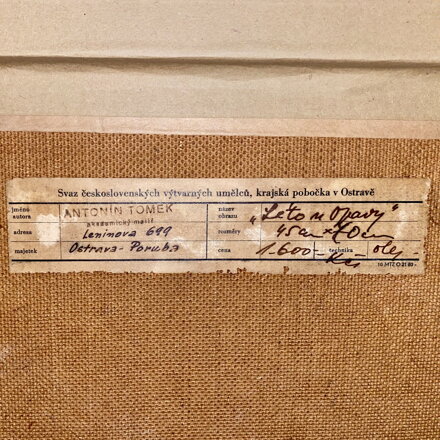 Svaz československých výtvarných umělců, krajská pobočka v Ostravě
jméno autora ANTONÍN TOMEK akademický malíř název obrazu "Léto u Opavy"
adresa Leninova 699 rozměry 45cm x 70cm
majetek Ostrava-Poruba cena 1.600 Kčs technika olej